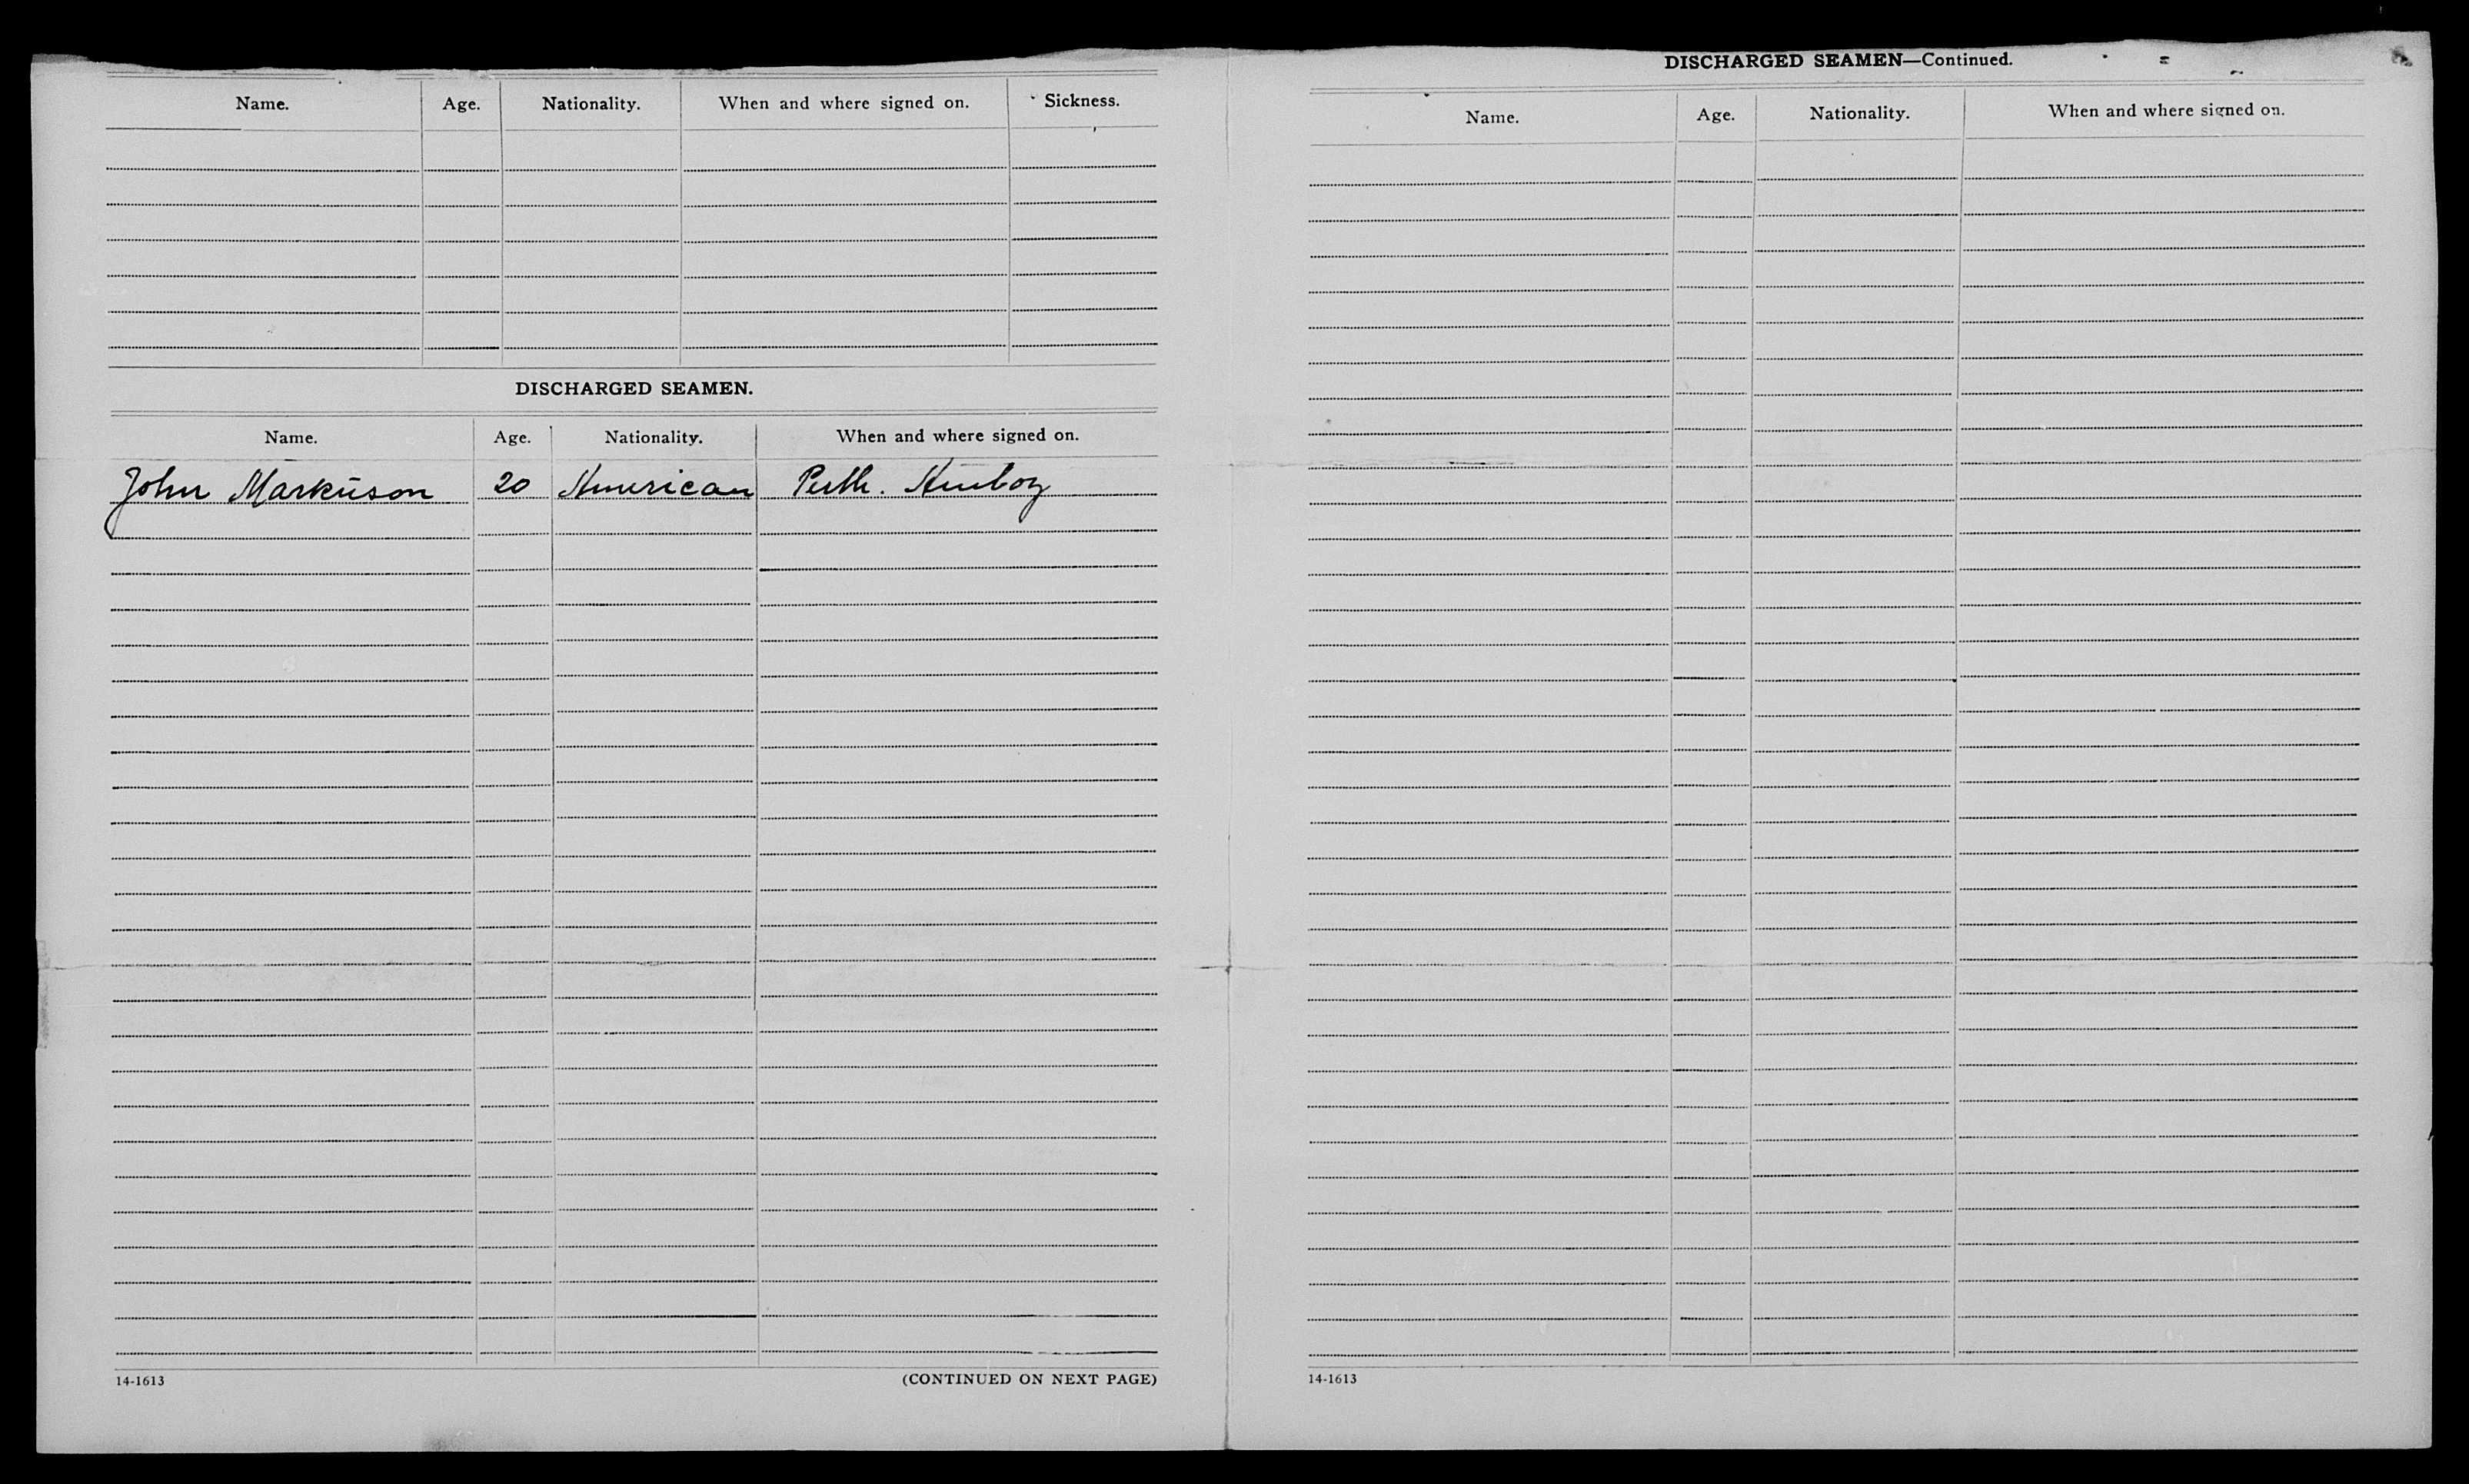 Name. Age. Nationality. When and where signed on. Sickness.
DISCHARGED SEAMEN.
Name. Age. Nationality. When and where signed on.
John Markuson 20 American Perth. Amboy
14-1613 (CONTINUED ON NEXT PAGE)
DISCHARGED SEAMEN—Continued.
Name. Age. Nationality. When and where signed on.
14-1613